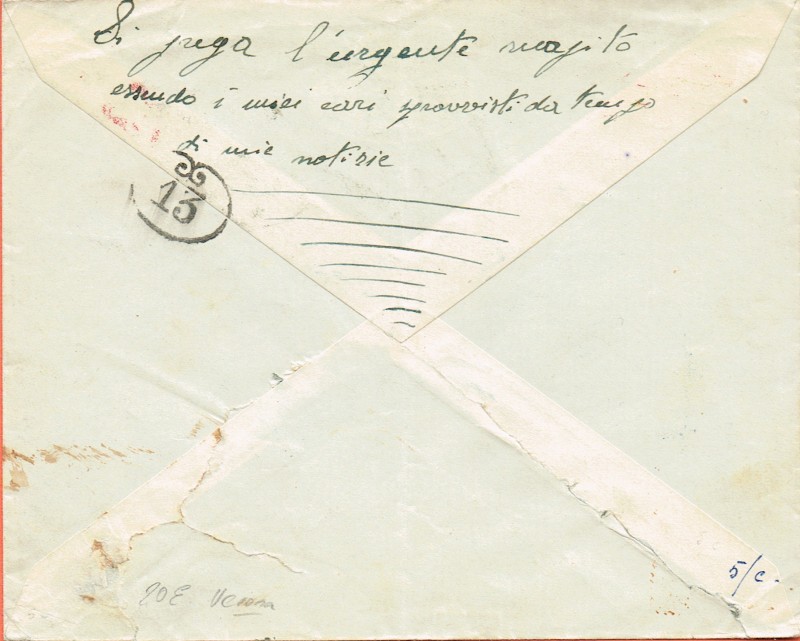 Si prega l'urgente recapito
essendo i miei cari sprovvisti da tempo
di mie notizie
13
5/c.
20E Verona